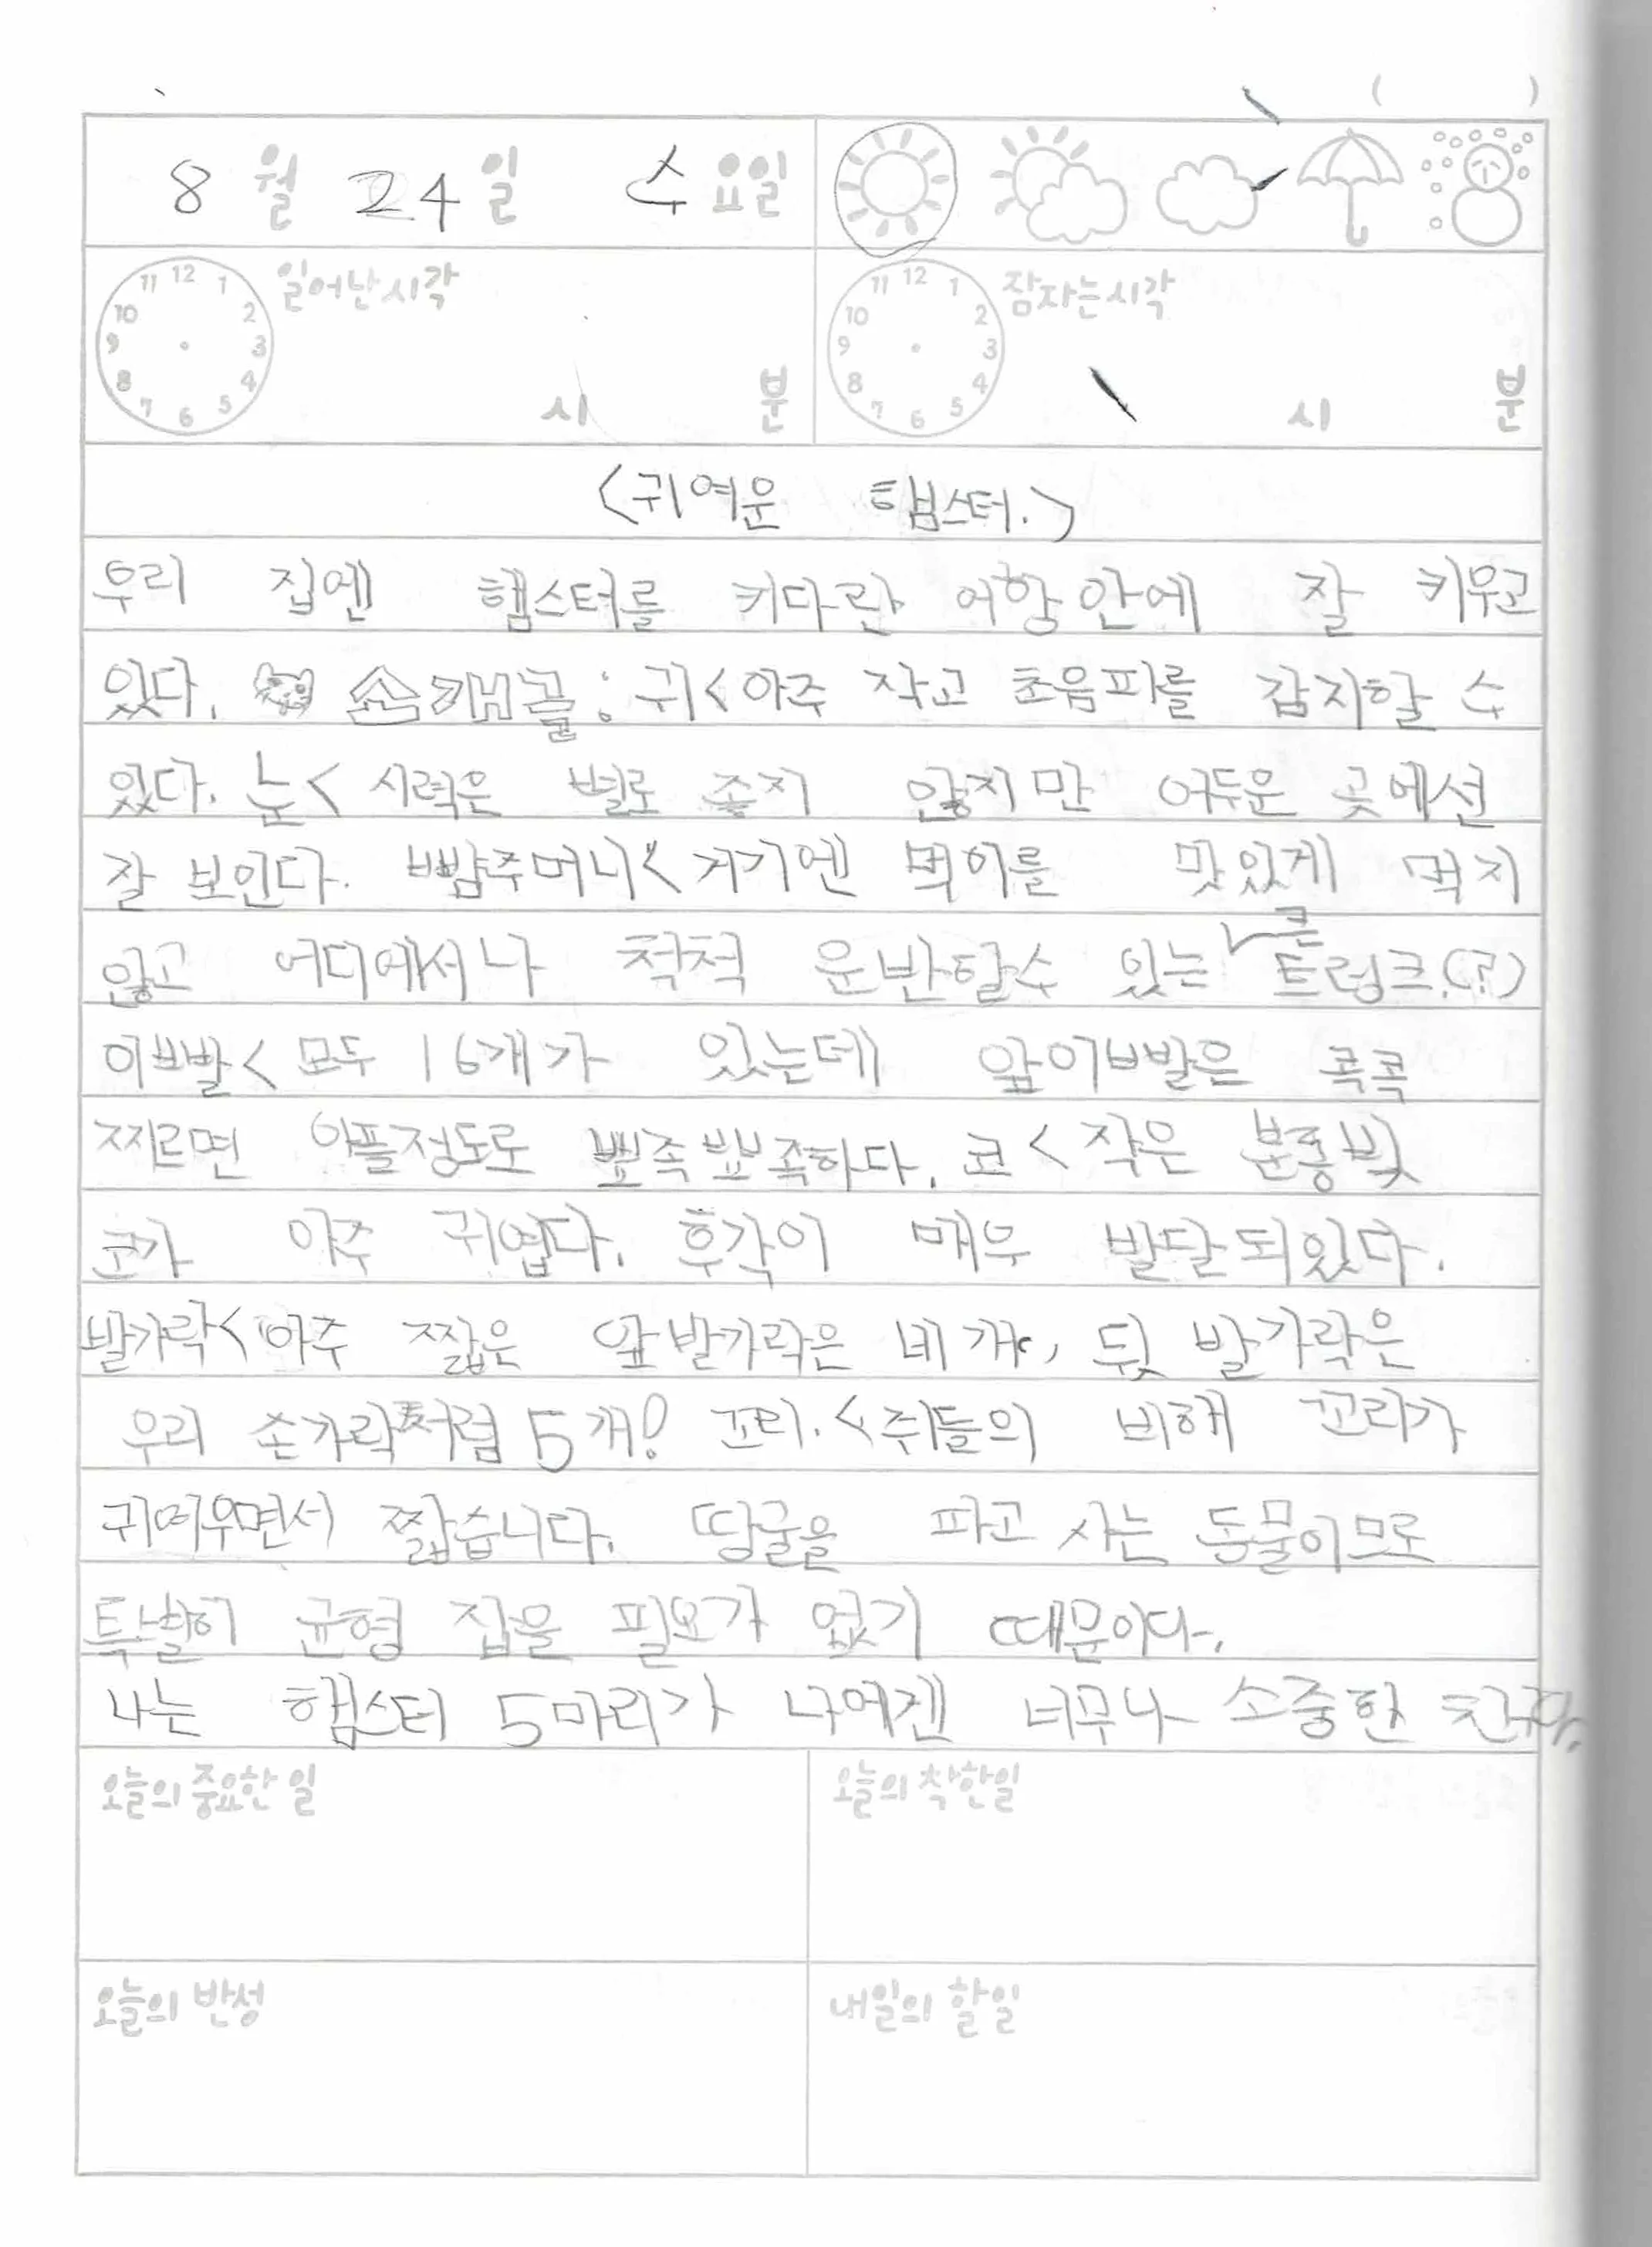 ( )
8월 24일 수요일
일어난시각
잠자는시각
11 12 1 10 2 9 3 8 4 7 6 5
11 12 1 10 2 9 3 8 4 7 6 5
시 분
시 분
<귀여운 햄스터.>
우리 집엔 햄스터를 커다란 어항 안에 잘 키우고
있다. 손개골: 귀<아주 작고 초음파를 감지할 수
있다. 눈< 시력은 별로 좋지 않지만 어두운 곳에선
잘 보인다. 뺨주머니<거기엔 먹이를 맛있게 먹지
않고 어디에서나 척척 운반할수 있는 큰 트렁크.(?)
이빨< 모두 16개가 있는데 앞이빨은 콕콕
찌르면 아플정도로 뾰족뾰족하다. 코< 작은 분홍빛
코가 아주 귀엽다. 후각이 매우 발달되있다.
발가락<아주 짧은 앞발가락은 네개, 뒷 발가락은
우리 손가락처럼 5개! 꼬리.<쥐들의 비해 꼬리가
귀여우면서 짧습니다. 땅굴을 파고 사는 동물이므로
특별히 균형 집을 필요가 없기 때문이다.
나는 햄스터 5마리가 나에겐 너무나 소중한
오늘의 중요한 일
오늘의 착한일
오늘의 반성
내일의 할일